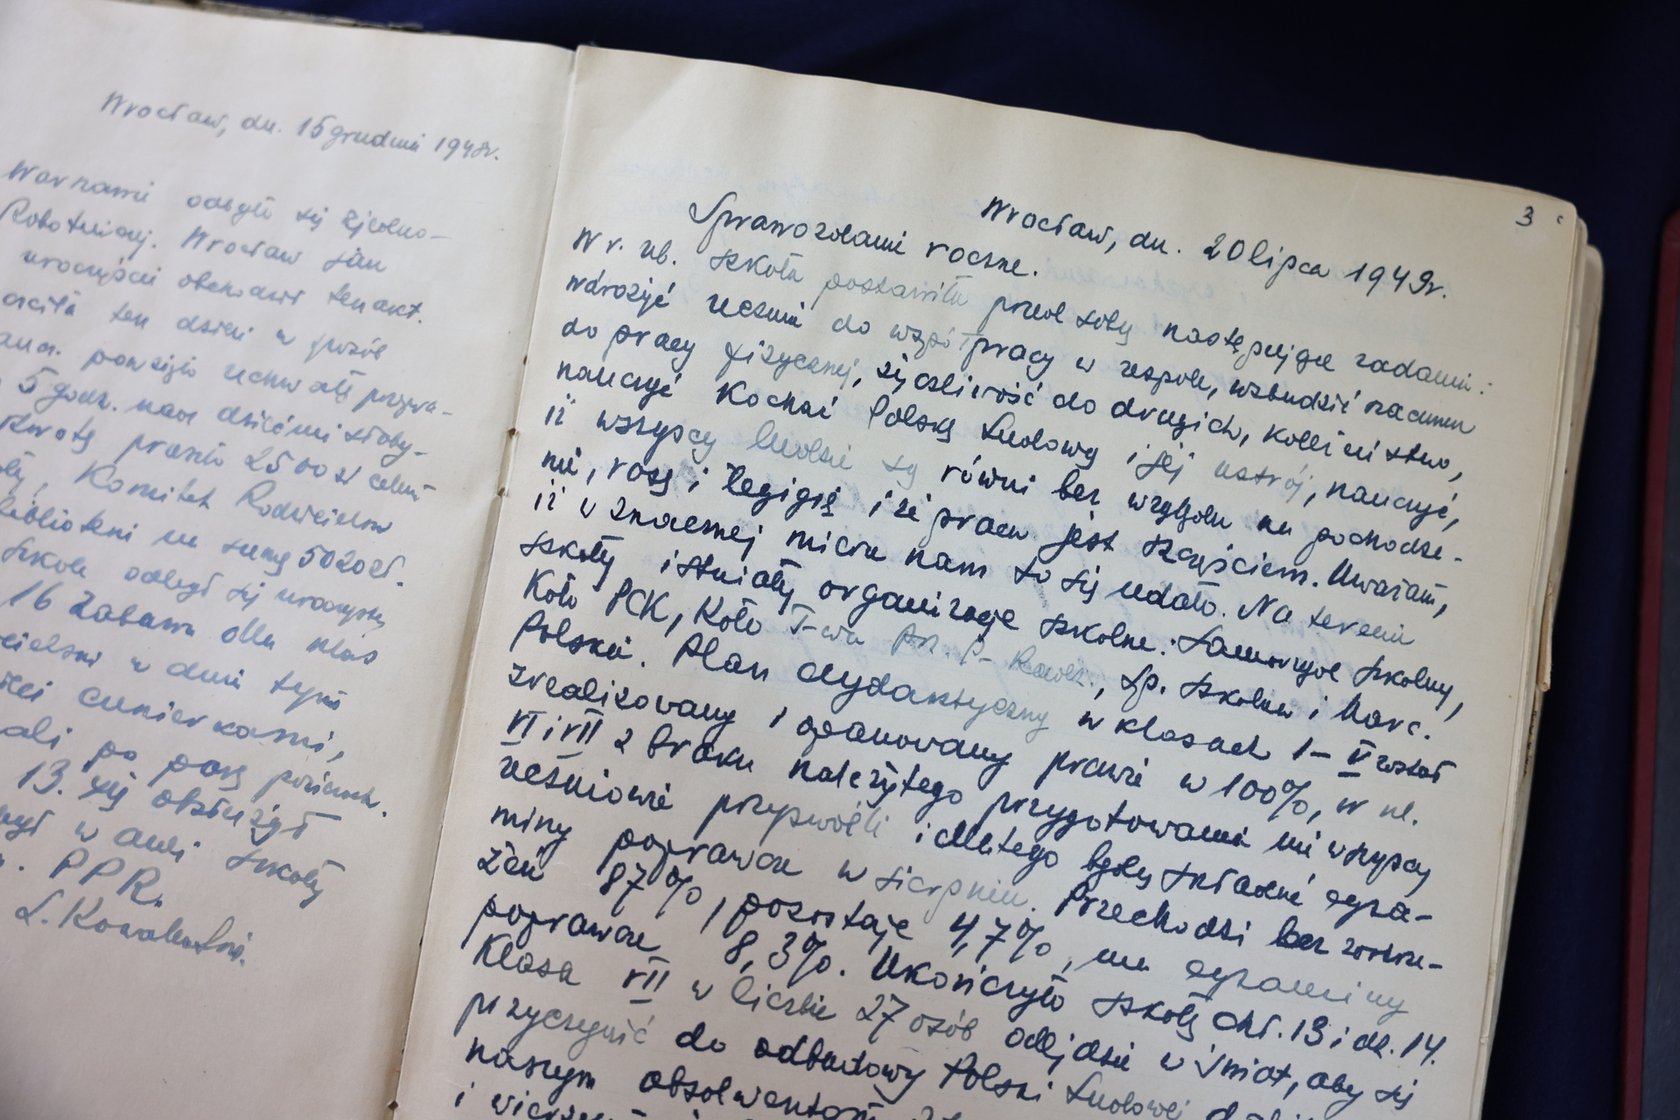 Wrocław, dn. 15 grudnia 1948r.
odbyło się Zjedno-
Robotniczej. Wrocław jak
uroczyście obchodził ten akt.
ten dzień w sposób
powzięto uchwałę
5 godz. nad dziećmi słaby-
prasie 2500 zł celem
Komitet Rodzicielski
biblioteki na sumę 5020 zł.
odbył się uroczysty
16 zabawa dla klas
w dniu tym
cukierkami,
po parę
13. XII obsłużył
w auli szkoły
PPR.
S. Kowalewski.
3
Wrocław, dn. 20 lipca 1949r.
Sprawozdanie roczne.
W r. ub. szkoła postawiła przed sobą następujące zadania:
wdrożyć ucznia do współpracy w zespole, wzbudzić szacunek
do pracy fizycznej, życzliwość do drugich, koleżeństwo,
nauczyć kochać Polskę Ludową i jej ustrój, nauczyć,
iż wszyscy ludzie są równi bez względu na pochodze-
nie, rasę i religię i że praca jest szczęściem. Uważam,
iż w znacznej mierze nam to się udało. Na terenie
szkoły istniały organizacje szkolne: Samorząd Szkolny,
Koło PCK, Koło T-wa Prz. P- Radz., Sp. szkolna i Harc.
Polskie. Plan dydaktyczny w klasach I – V został
zrealizowany i opanowany prawie w 100%, w kl.
VI i VII z braku należytego przygotowania nie wszyscy
uczniowie przyswoili i dlatego będą składać egza-
miny poprawcze w sierpniu. Przechodzi bez zastrze-
żeń 87%, pozostaje 4,7%, ma egzaminy
poprawcze 8,3%. Ukończyło szkołę chł. 13 i dz. 14.
Klasa VII w liczbie 27 osób odejdzie w świat, aby się
przyczynić do odbudowy Polski Ludowej
naszym absolwentom
i